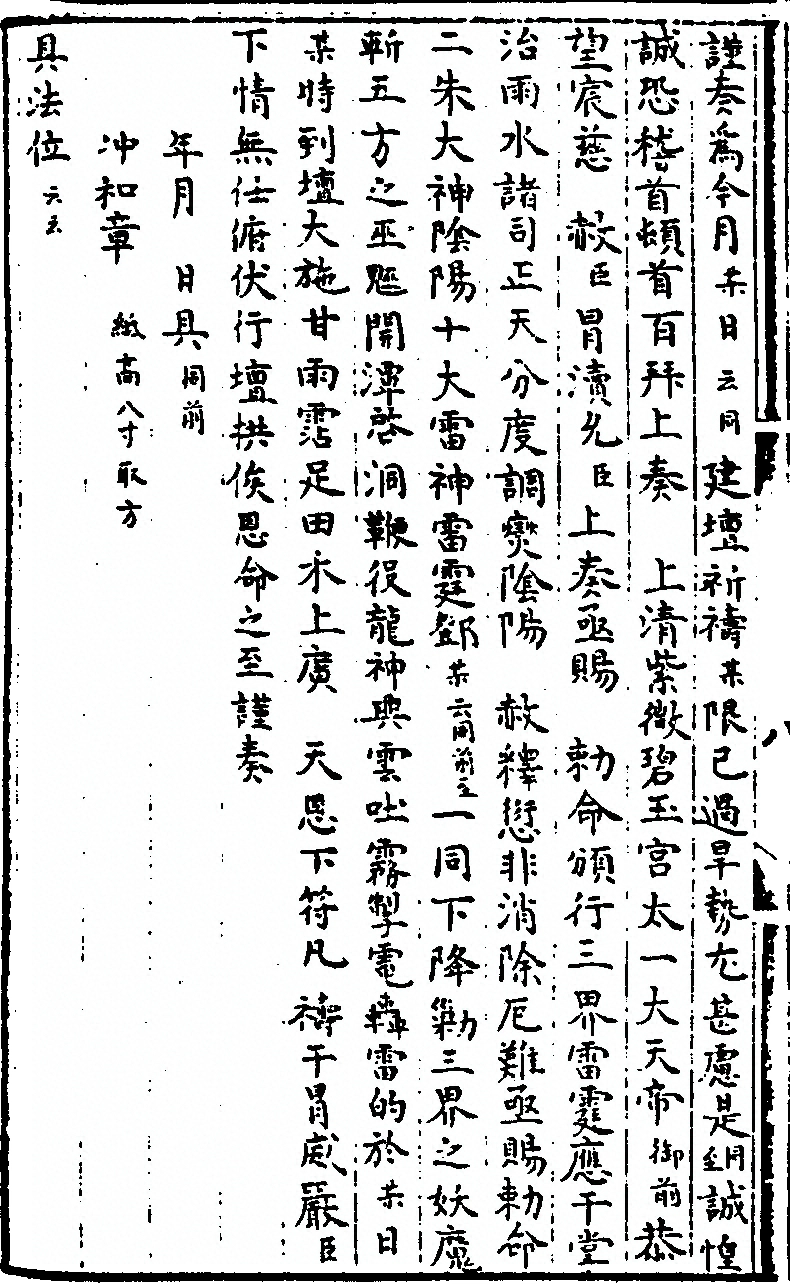 謹奏爲今月某日云同建壇祈禱某限已過旱勢尤甚慮是至同誠惶
誠恐稽首頓首百拜上奏　上清紫微碧玉宮太一大天帝御前恭
望宸慈　赦臣冒瀆允臣上奏亟賜　勅命頒行三界雷霆應干堂
治雨水諸司正天分度調爕陰陽　赦釋愆非消除厄難亟賜勅命
二朱大神陰陽十大雷神雷霆鄧某云同前至一同下降勦三界之妖魔
斬五方之巫魅開潭啓洞鞭役龍神興雲吐霧掣電轟雷的於某日
某時到壇大施甘雨霑足田禾上廣　天恩下符凡禱干冒威嚴臣
下情無任俯伏行壇拱俟恩命之至謹奏
年月　日具同前
冲和章　緘高八寸取方
具法位云云